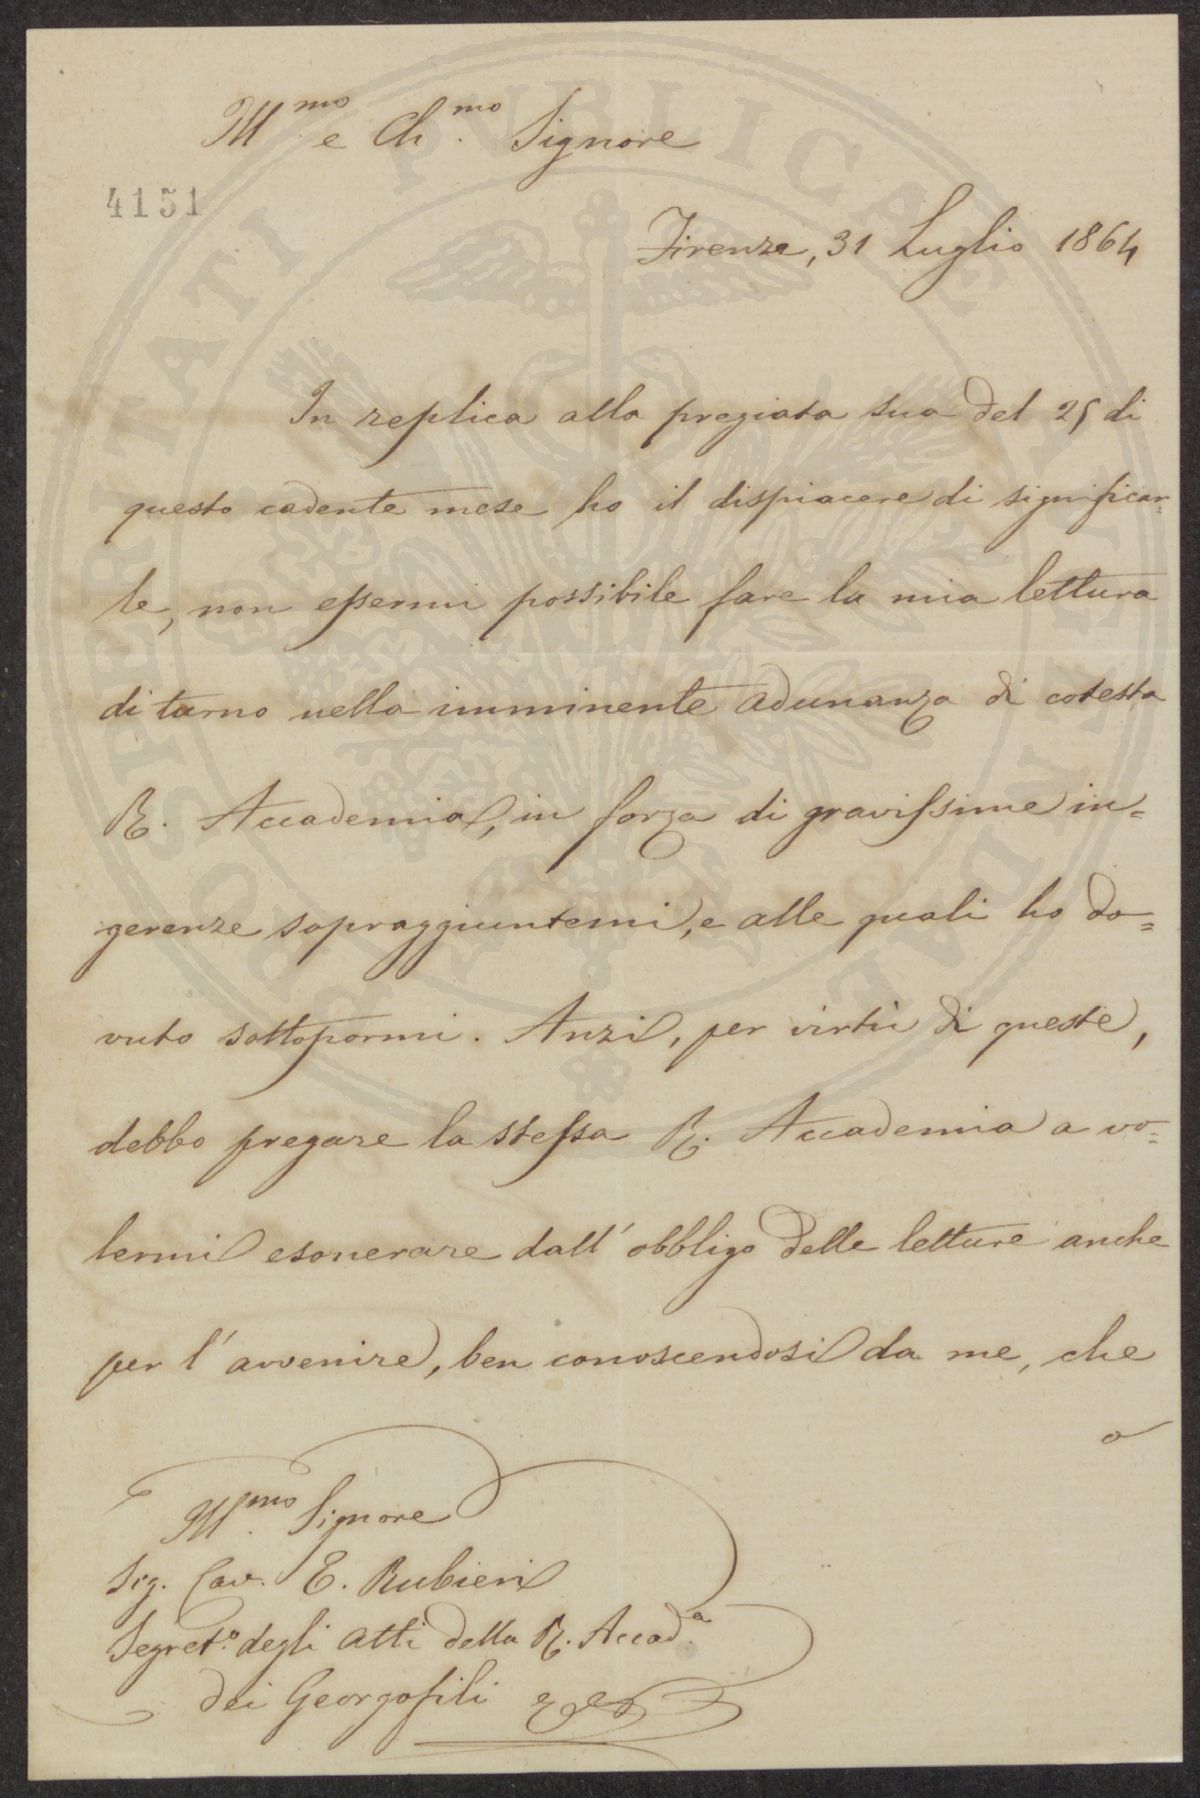 Ill.mo e Ch.mo Signore
4151
Firenze, 31 Luglio 1864
In replica alla pregiata sua del 25 di
questo cadente mese ho il dispiacere di significar=
le, non essermi possibile fare la mia lettura
di turno nella imminente adunanza di cotesta
R. Accademia, in forza di gravissime in=
gerenze sopraggiuntemi, e alle quali ho do=
vuto sottopormi. Anzi, per virtù di queste,
debbo pregare la stessa R. Accademia a vo=
lermi esonerare dall' obbligo delle letture anche
per l' avvenire, ben conoscendosi da me, che
o
Ill.mo Signore
Sig. Cav. E. Rubieri
Segret.o degli Atti della R. Accad.a
dei Georgofili
PROSPERITATI PUBLICAE AUGENDAE